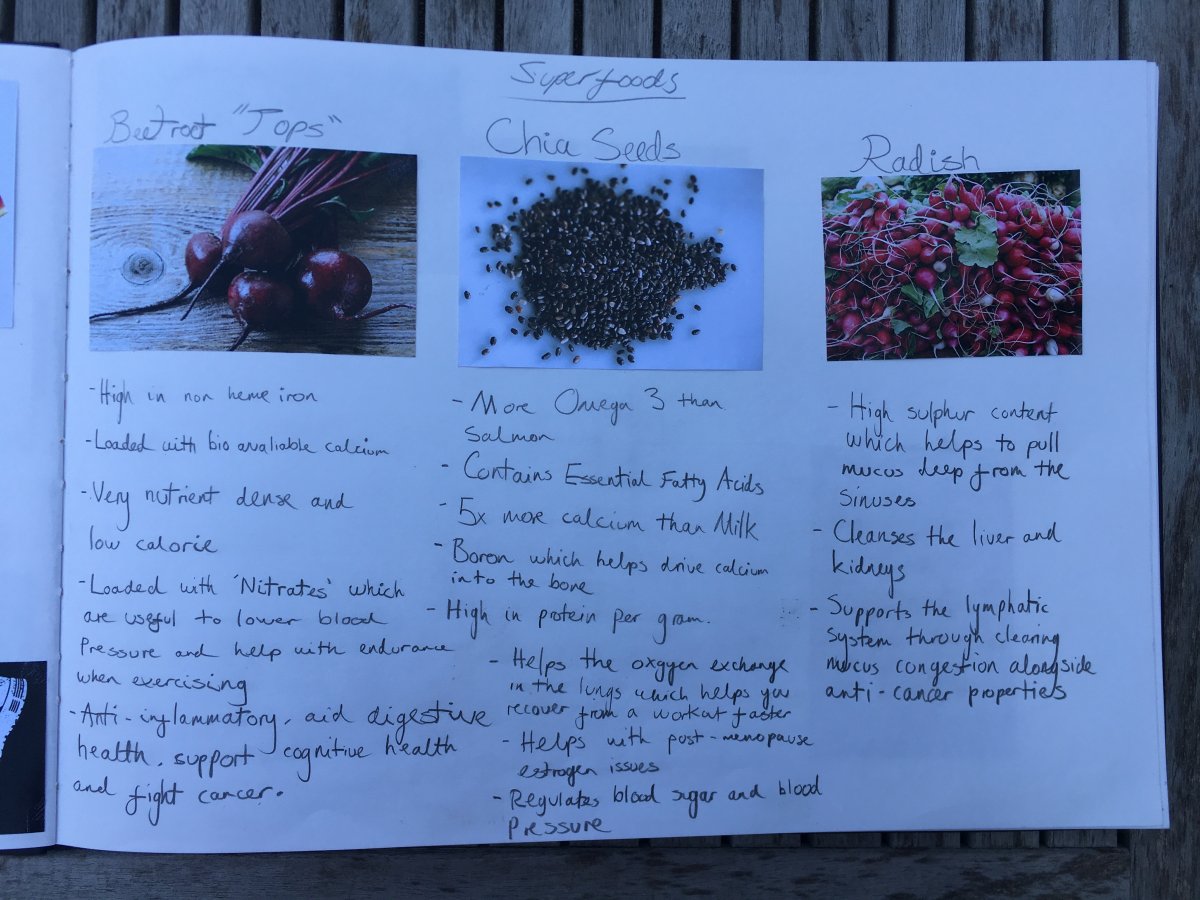 Superfoods
Beetroot "Tops"
- High in non heme iron
- Loaded with bio avaliable calcium
- Very nutrient dense and
low calorie
- Loaded with 'Nitrates' which
are useful to lower blood
Pressure and help with endurance
when exercising
- Anti-inflammatory, aid digestive
health, support cognitive health
and fight cancer.
Chia Seeds
- More Omega 3 than
Salmon
- Contains Essential Fatty Acids
- 5x more calcium than Milk
- Boron which helps drive calcium
into the bone
- High in protein per gram.
- Helps the oxgyen exchange
in the lungs which helps you
recover from a workout faster
- Helps with post-menopause
estrogen issues
- Regulates blood sugar and blood
Pressure
Radish
- High sulphur content
which helps to pull
mucus deep from the
Sinuses
- Cleanses the liver and
kidneys
- Supports the lymphatic
system through clearing
mucus congestion alongside
anti-cancer properties